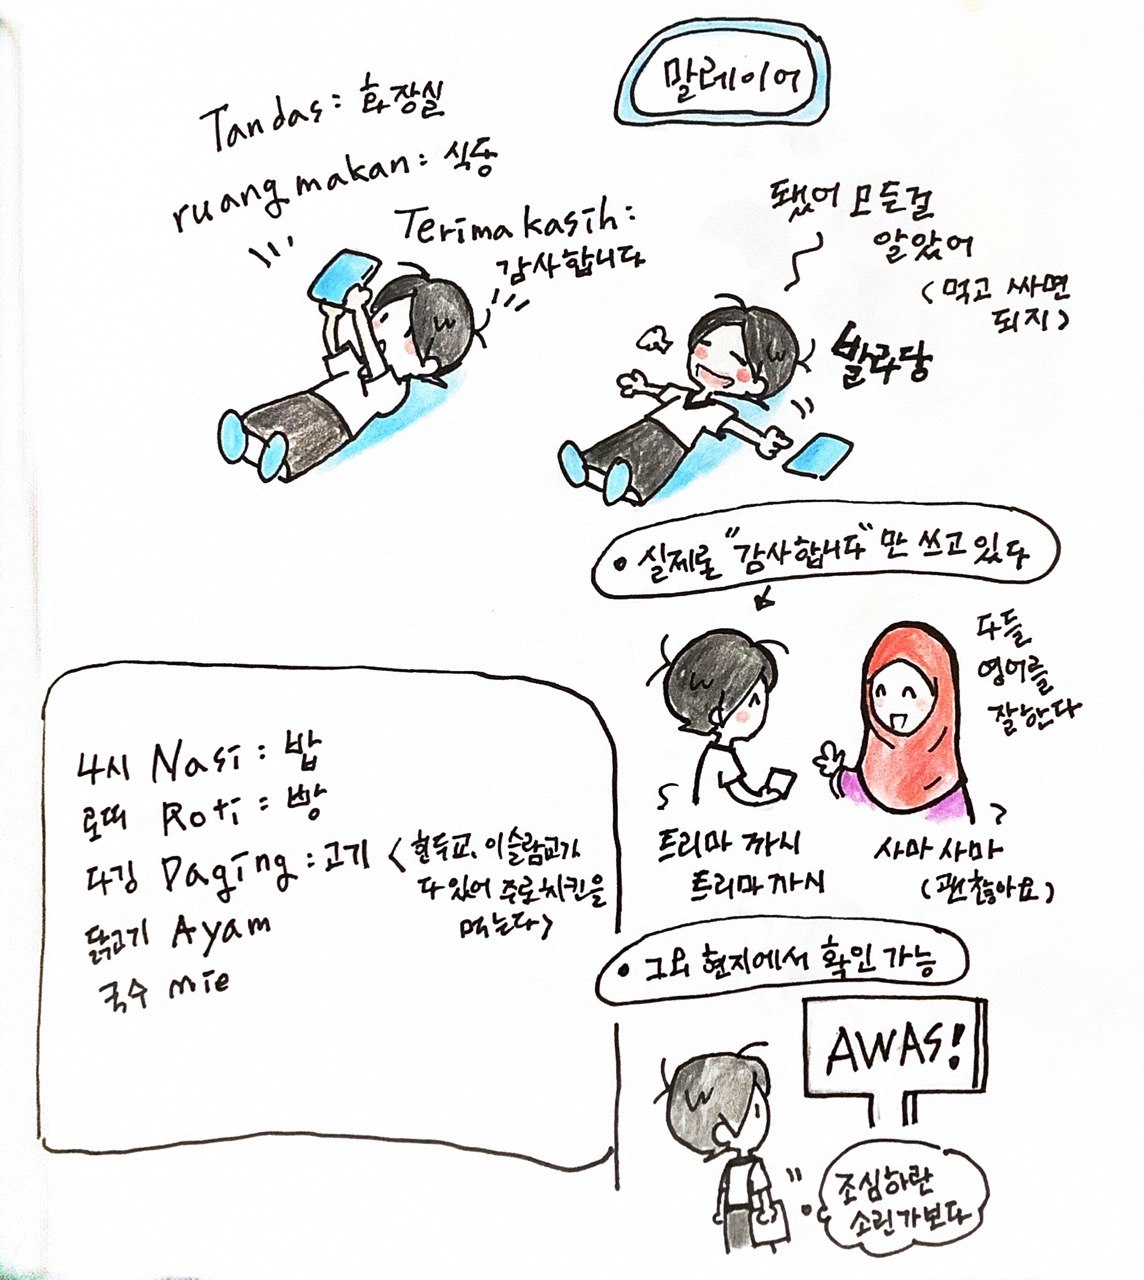 말레이어
Tandas: 화장실
ruang makan: 식당
Terima kasih:
감사합니다
됐어 모든걸
알았어
(먹고 싸면
되지)
발라당
• 실제로 "감사합니다"만 쓰고 있다
다들
영어를
잘한다
트리마 까시
트리마 까시
사마 사마
(괜찮아요)
나시 Nasi: 밥
로띠 Roti: 빵
다깅 Daging: 고기 (힌두교, 이슬람교가
다 있어 주로 치킨을
먹는다)
닭고기 Ayam
국수 mie
• 그외 현지에서 확인 가능
AWAS!
조심하란
소린가보다